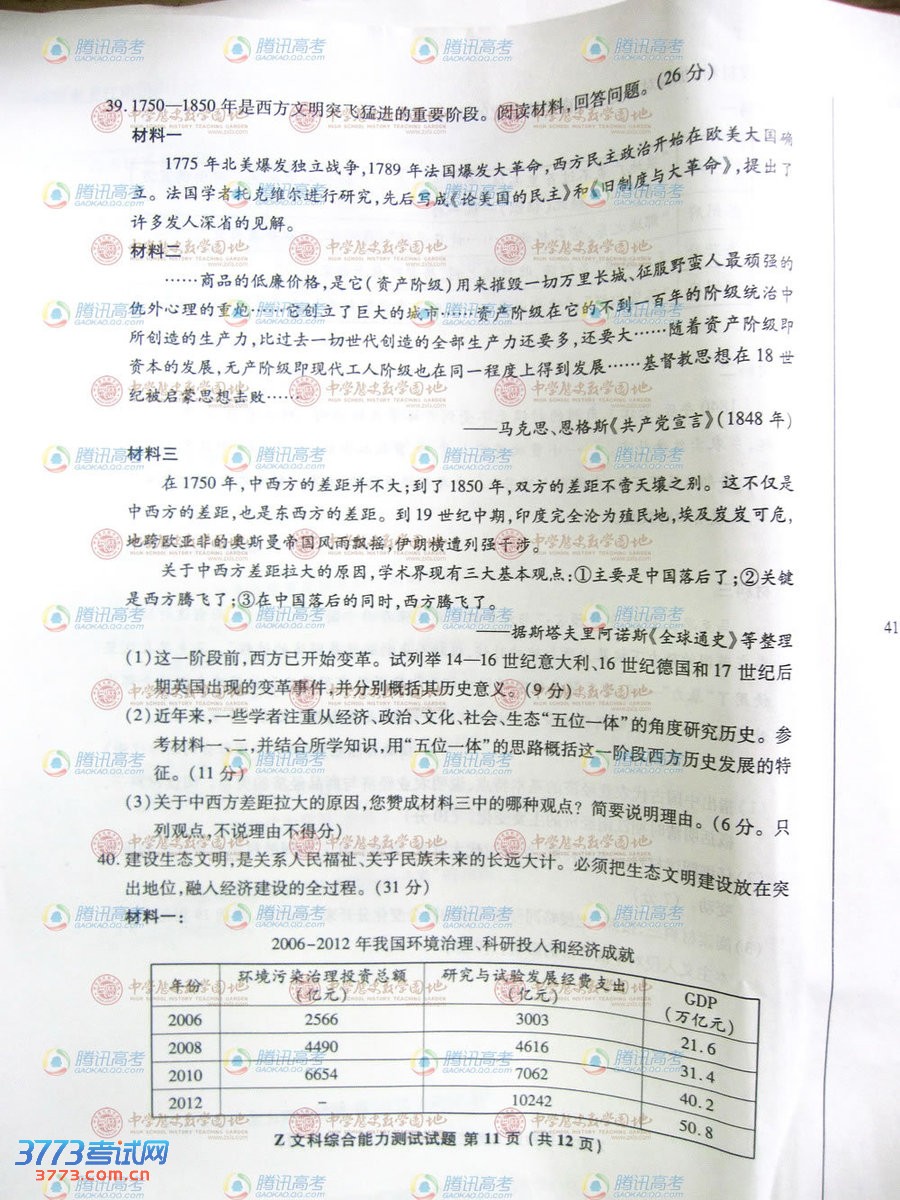 39. 1750—1850 年是西方文明突飞猛进的重要阶段。阅读材料,回答问题。(26 分)
材料一
1775 年北美爆发独立战争,1789 年法国爆发大革命,西方民主政治开始在欧美大国确
立。法国学者托克维尔进行研究,先后写成《论美国的民主》和《旧制度与大革命》,提出了
许多发人深省的见解。
材料二
……商品的低廉价格,是它(资产阶级)用来摧毁一切万里长城、征服野蛮人最顽强的
仇外心理的重炮……它创立了巨大的城市……资产阶级在它的不到一百年的阶级统治中
所创造的生产力,比过去一切世代创造的全部生产力还要多,还要大……随着资产阶级即
资本的发展,无产阶级即现代工人阶级也在同一程度上得到发展……基督教思想在 18 世
纪被启蒙思想击败……
——马克思、恩格斯《共产党宣言》(1848 年)
材料三
在 1750 年,中西方的差距并不大;到了 1850 年,双方的差距不啻天壤之别。这不仅是
中西方的差距,也是东西方的差距。到 19 世纪中期,印度完全沦为殖民地,埃及岌岌可危,
地跨欧亚非的奥斯曼帝国风雨飘摇,伊朗横遭列强干涉。
关于中西方差距拉大的原因,学术界现有三大基本观点:①主要是中国落后了;②关键
是西方腾飞了;③在中国落后的同时,西方腾飞了。
——据斯塔夫里阿诺斯《全球通史》等整理
(1)这一阶段前,西方已开始变革。试列举 14—16 世纪意大利、16 世纪德国和 17 世纪后
期英国出现的变革事件,并分别概括其历史意义。(9 分)
(2)近年来,一些学者注重从经济、政治、文化、社会、生态“五位一体”的角度研究历史。参
考材料一、二,并结合所学知识,用“五位一体”的思路概括这一阶段西方历史发展的特
征。(11 分)
(3)关于中西方差距拉大的原因,您赞成材料三中的哪种观点?简要说明理由。(6 分。只
列观点,不说理由不得分)
40. 建设生态文明,是关系人民福祉、关乎民族未来的长远大计。必须把生态文明建设放在突
出地位,融入经济建设的全过程。(31 分)
材料一:
2006-2012 年我国环境治理、科研投入和经济成就
年份 环境污染治理投资总额(亿元) 研究与试验发展经费支出(亿元) GDP(万亿元)
2006 2566 3003 21.6
2008 4490 4616 31.4
2010 6654 7062 40.2
2012 - 10242 50.8
Z 文科综合能力测试试题 第 11 页 (共 12 页)
41
腾讯高考
GAOKAO.QQ.COM
中学历史教学园地
HIGH SCHOOL HISTORY TEACHING GARDEN
www.zxls.com
3773考试网
3773.com.cn